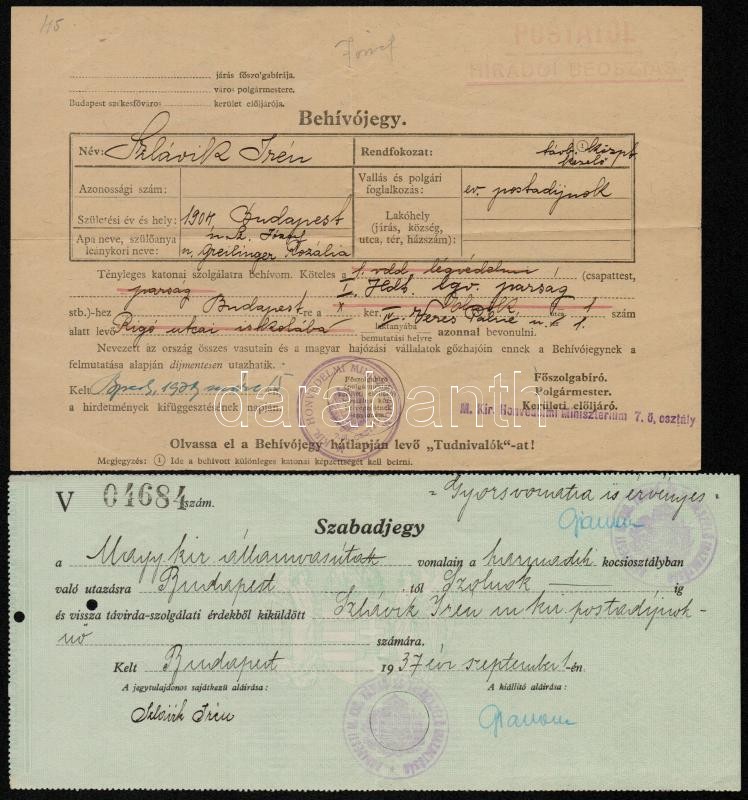 45
József
POSTATÓL
HIRADÓI BEOSZTÁS
járás főszolgabírája.
város polgármestere.
Budapest székesfőváros kerület elöljárója.
Behívójegy.
Név: Szlávik Irén
Rendfokozat: távb. közpt. kezelő
Azonossági szám:
Vallás és polgári foglalkozás: ev. postadijnok
Születési év és hely: 1904, Budapest
Lakóhely (járás, község, utca, tér, házszám):
Apa neve, szülőanya leánykori neve: József n. Greilinger Rozália
Tényleges katonai szolgálatra behívom. Köteles a 1. vdd. légvédelmi (csapattest,
parság I. Hdt. lgv. parság
stb.)-hez Budapest-re a X ker. 1 szám
alatt levő Rigó utcai iskolába laktanyába bemutatási helyre IV. Veres Pálné u. 1. azonnal bevonulni.
Nevezett az ország összes vasutain és a magyar hajózási vállalatok gőzhajóin ennek a Behívójegynek a
felmutatása alapján díjmentesen utazhatik.
Kelt Bpest, 19
a hirdetmények kifüggesztésének napján.
HONVÉDELMI
Főszolgabíró.
Polgármester.
Kerületi elöljáró.
M. Kir. Honvédelmi Minisztérium 7. ő. osztály
darabanth
Olvassa el a Behívójegy hátlapján levő „Tudnivalók"-at!
Megjegyzés: 1 Ide a behívott különleges katonai képzettségét kell beírni.
V 04684 szám.
= Gyorsvonatra is érvényes =
Szabadjegy
a Magy. kir. államvasútak vonalain a harmadik kocsiosztályban
való utazásra Budapest tól Szolnok ig
és vissza távirda-szolgálati érdekből kiküldött Szlávik Irén m. kir. postadíjnok-
nő számára.
Kelt Budapest 1937 évi szeptember 1-én.
A jegytulajdonos sajátkezű aláírása:
A kiállító aláírása:
Szlávik Irén